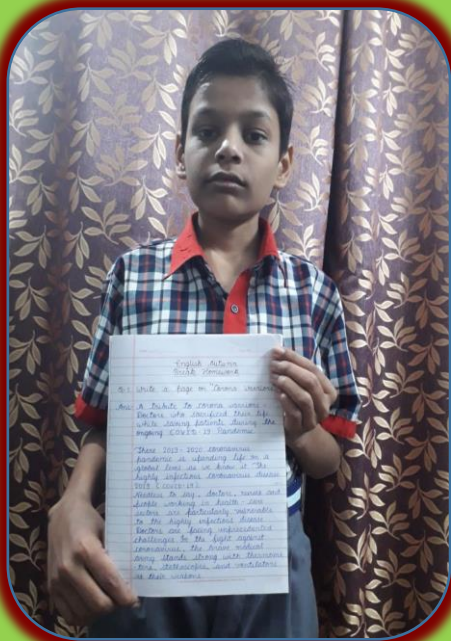 English Autumn
Break Homework
Q:1 Write a page on "Corona warriors"
Ans:- A Tribute to corona warriors :-
Doctors who sacrificed their life
while saving patients during the
ongoing COVID-19 Pandemic.
These 2019-2020 coronavirus
pandemic is upending life on a
global level as we know it. The
highly infectious coronavirus disease
2019 (COVID-19).
Needless to say, doctors, nurses and
people working in health-care
sectors are particularly vulnerable
to the highly infectious disease.
Doctors are facing unprecedented
challenges to the fight against
coronavirus, the brave medical
army stands strong with thermome
ters, stethoscopes, and ventilators
as their weapons.